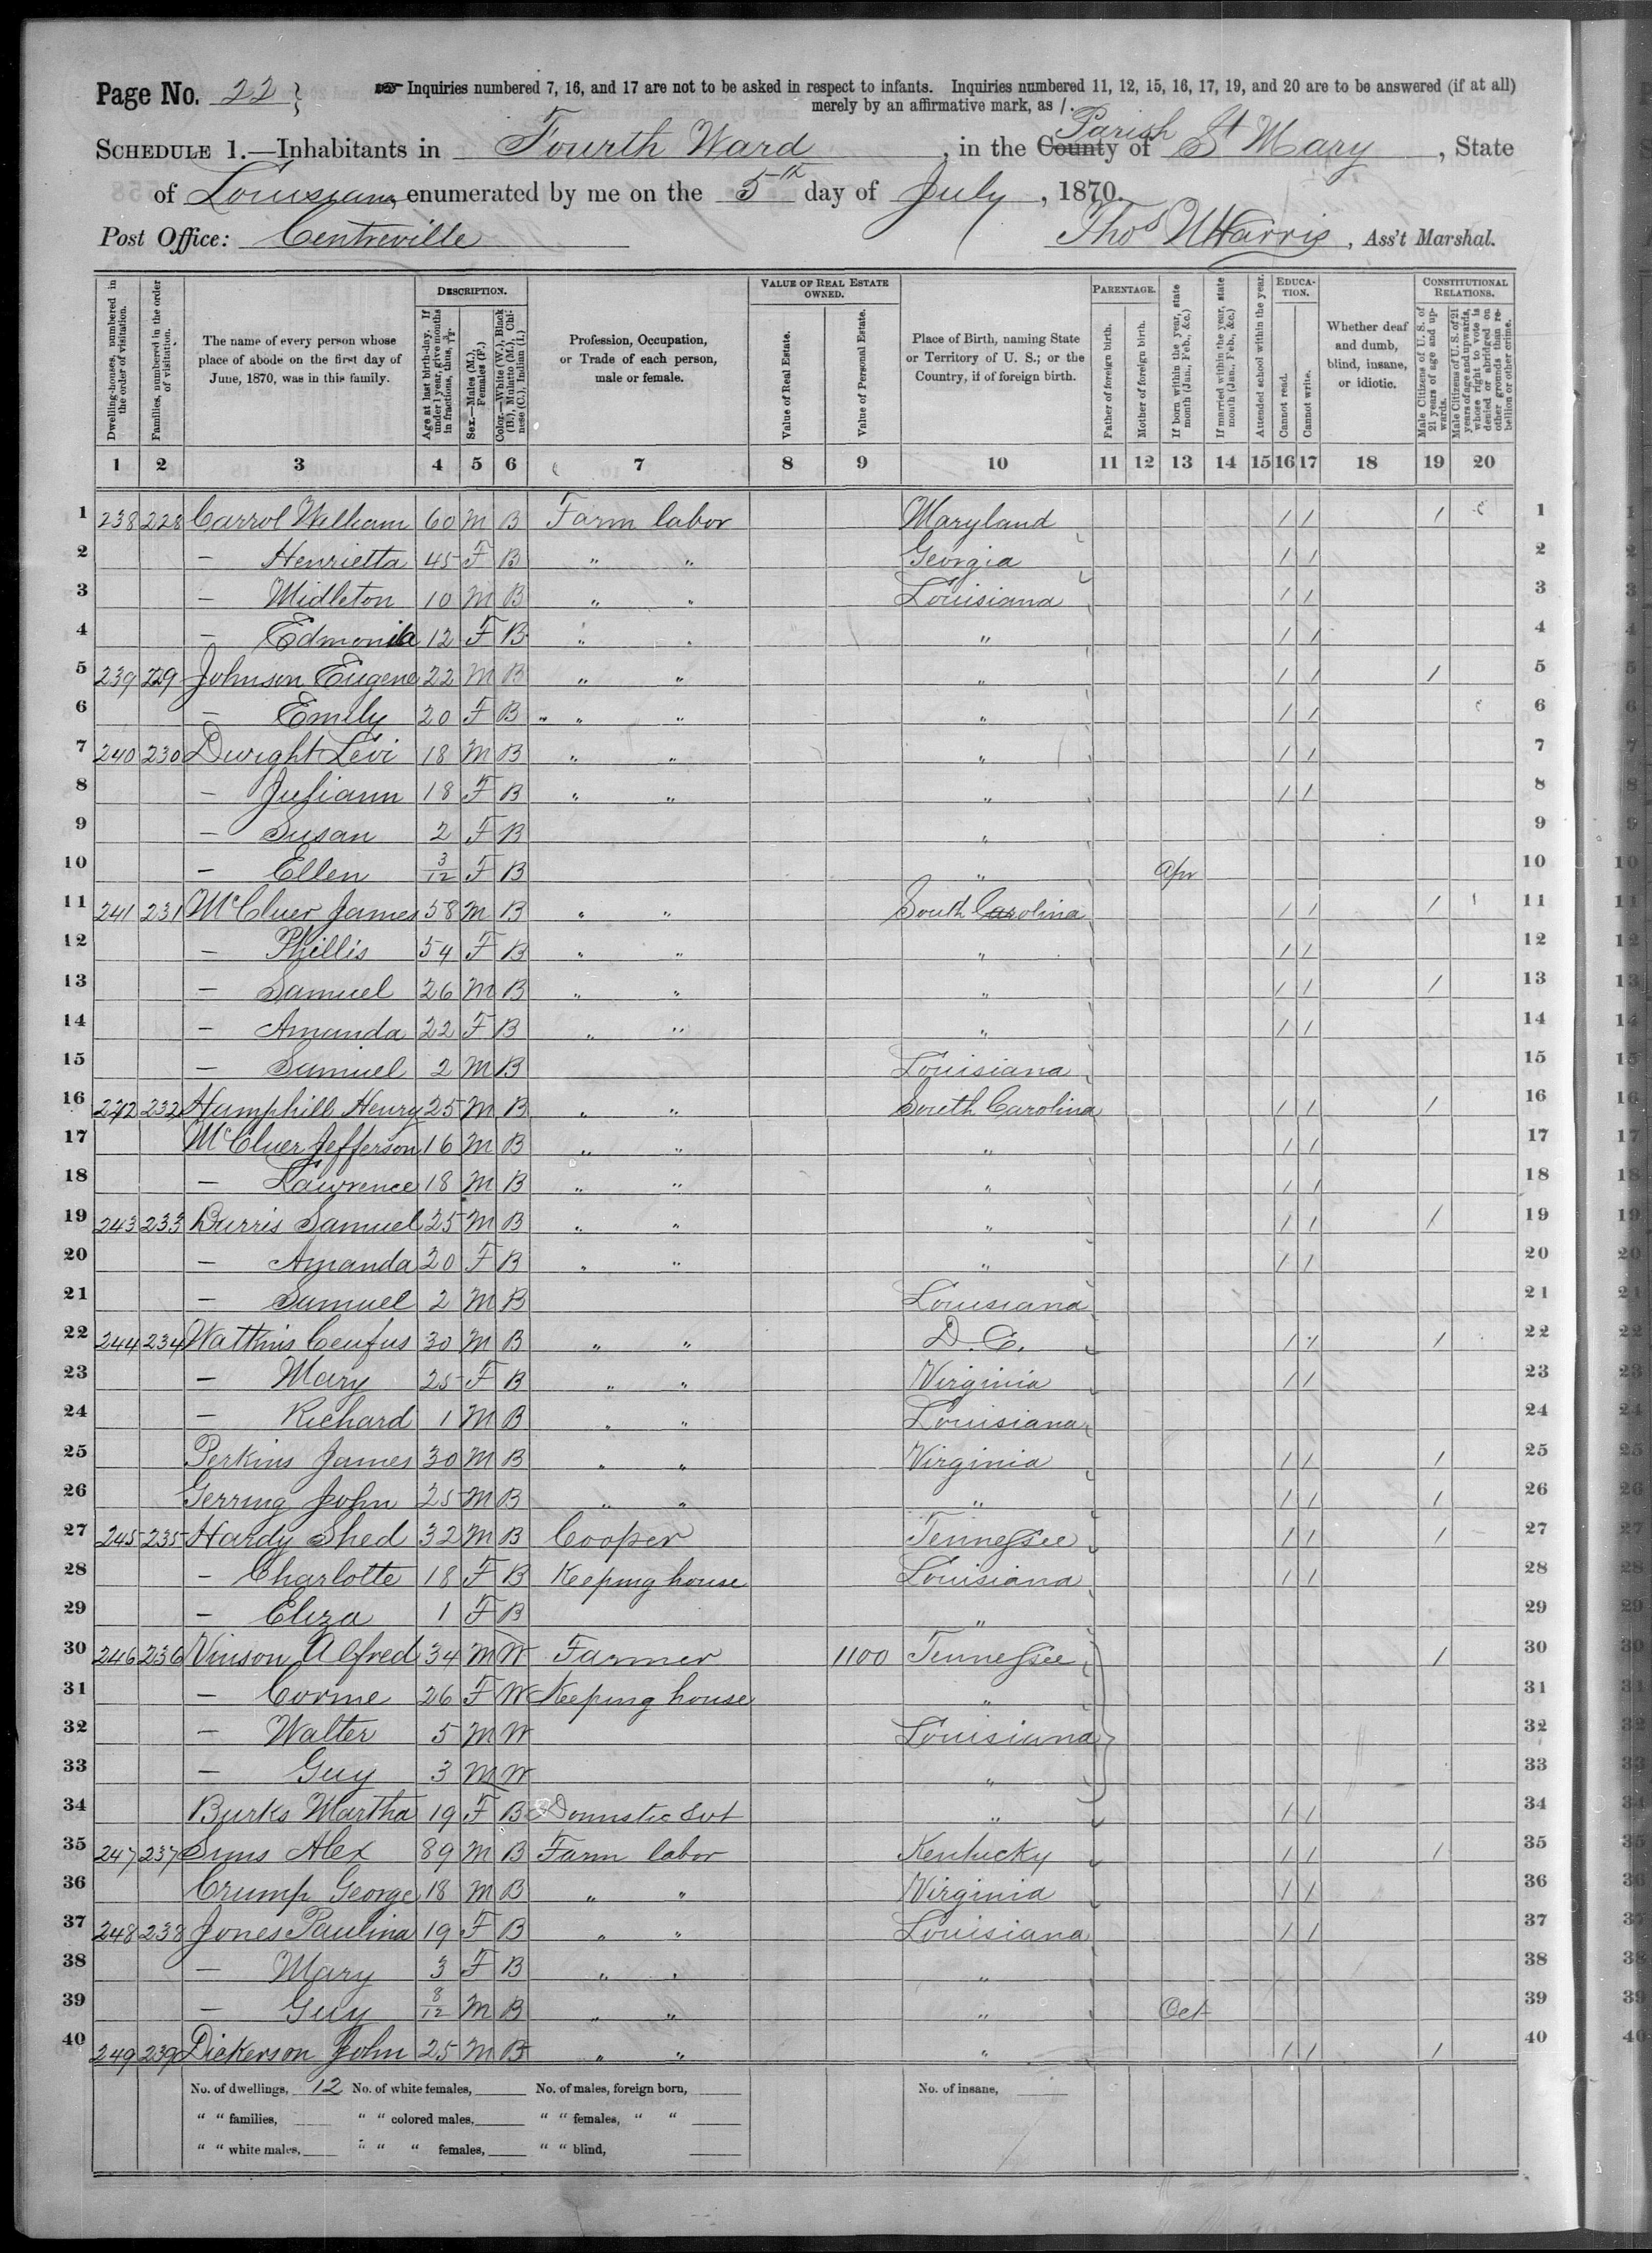 Page No. 22 } Inquiries numbered 7, 16, and 17 are not to be asked in respect to infants. Inquiries numbered 11, 12, 15, 16, 17, 19, and 20 are to be answered (if at all)
merely by an affirmative mark, as /.
SCHEDULE 1.—Inhabitants in Fourth Ward, in the County Parish of St Mary, State
of Louisiana, enumerated by me on the 5th day of July, 1870.
Post Office: Centreville Thos W Harris, Ass't Marshal.
Dwelling-houses, numbered in the order of visitation.
Families, numbered in the order of visitation.
The name of every person whose place of abode on the first day of June, 1870, was in this family.
DESCRIPTION.
Age at last birth-day. If under 1 year, give months in fractions, thus, 3/12.
Sex.—Males (M.), Females (F.)
Color.—White (W.), Black (B.), Mulatto (M.), Chinese (C.), Indian (I.)
Profession, Occupation, or Trade of each person, male or female.
VALUE OF REAL ESTATE OWNED.
Value of Real Estate.
Value of Personal Estate.
Place of Birth, naming State or Territory of U. S.; or the Country, if of foreign birth.
PARENTAGE.
Father of foreign birth.
Mother of foreign birth.
If born within the year, state month (Jan., Feb., &c.)
If married within the year, state month (Jan., Feb., &c.)
Attended school within the year.
EDUCATION.
Cannot read.
Cannot write.
Whether deaf and dumb, blind, insane, or idiotic.
CONSTITUTIONAL RELATIONS.
Male Citizens of U. S. of 21 years of age and upwards.
Male Citizens of U. S. of 21 years of age and upwards, whose right to vote is denied or abridged on other grounds than rebellion or other crime.
1 2 3 4 5 6 7 8 9 10 11 12 13 14 15 16 17 18 19 20
1 238 228 Carrol William 60 M B Farm labor Maryland / / / 1
2 — Henrietta 45 F B " " Georgia / / 2
3 — Midleton 10 M B " " Louisiana / / 3
4 — Edmonia 12 F B " " " / / 4
5 239 229 Johnson Eugene 22 M B " " " / / / 5
6 — Emily 20 F B " " " / / 6
7 240 230 Dwight Levi 18 M B " " " / / 7
8 — Juliann 18 F B " " " / / 8
9 — Susan 2 F B " 9
10 — Ellen 3/12 F B " Apr 10
11 241 231 McCluer James 58 M B " " South Carolina / / / 11
12 — Phillis 54 F B " " " / / 12
13 — Samuel 26 M B " " " / / / 13
14 — Amanda 22 F B " " " / / 14
15 — Samuel 2 M B Louisiana 15
16 242 232 Hamphill Henry 25 M B " " South Carolina / / / 16
17 McCluer Jefferson 16 M B " " " / / 17
18 — Lawrence 18 M B " " " / / 18
19 243 233 Burris Samuel 25 M B " " " / / / 19
20 — Amanda 20 F B " " " / / 20
21 — Samuel 2 M B Louisiana 21
22 244 234 Watkins Ceufus 30 M B " " D. C. / / / 22
23 — Mary 25 F B " " Virginia / / 23
24 — Richard 1 M B " " Louisiana 24
25 Perkins James 30 M B " " Virginia / / / 25
26 Gerring John 25 M B " " " / / / 26
27 245 235 Hardy Shed 32 M B Cooper Tennessee / / / 27
28 — Charlotte 18 F B Keeping house Louisiana / / 28
29 — Eliza 1 F B " 29
30 246 236 Vinson Alfred 34 M W Farmer 1100 Tennessee / 30
31 — Corrne 26 F W Keeping house " 31
32 — Walter 5 M W Louisiana 32
33 — Guy 3 M W " 33
34 Burks Martha 19 F B Domestic Svt " / / 34
35 247 237 Sims Alex 89 M B Farm labor Kentucky / / / 35
36 Crump George 18 M B " " Virginia / / 36
37 248 238 Jones Paulina 19 F B " " Louisiana / / 37
38 — Mary 3 F B " " " 38
39 — Guy 8/12 M B " " " Oct 39
40 249 239 Dickerson John 25 M B " " " / / / 40
No. of dwellings, 12 No. of white females, No. of males, foreign born, No. of insane,
" " families, " " colored males, " " females, " "
" " white males, " " " females, " " blind,